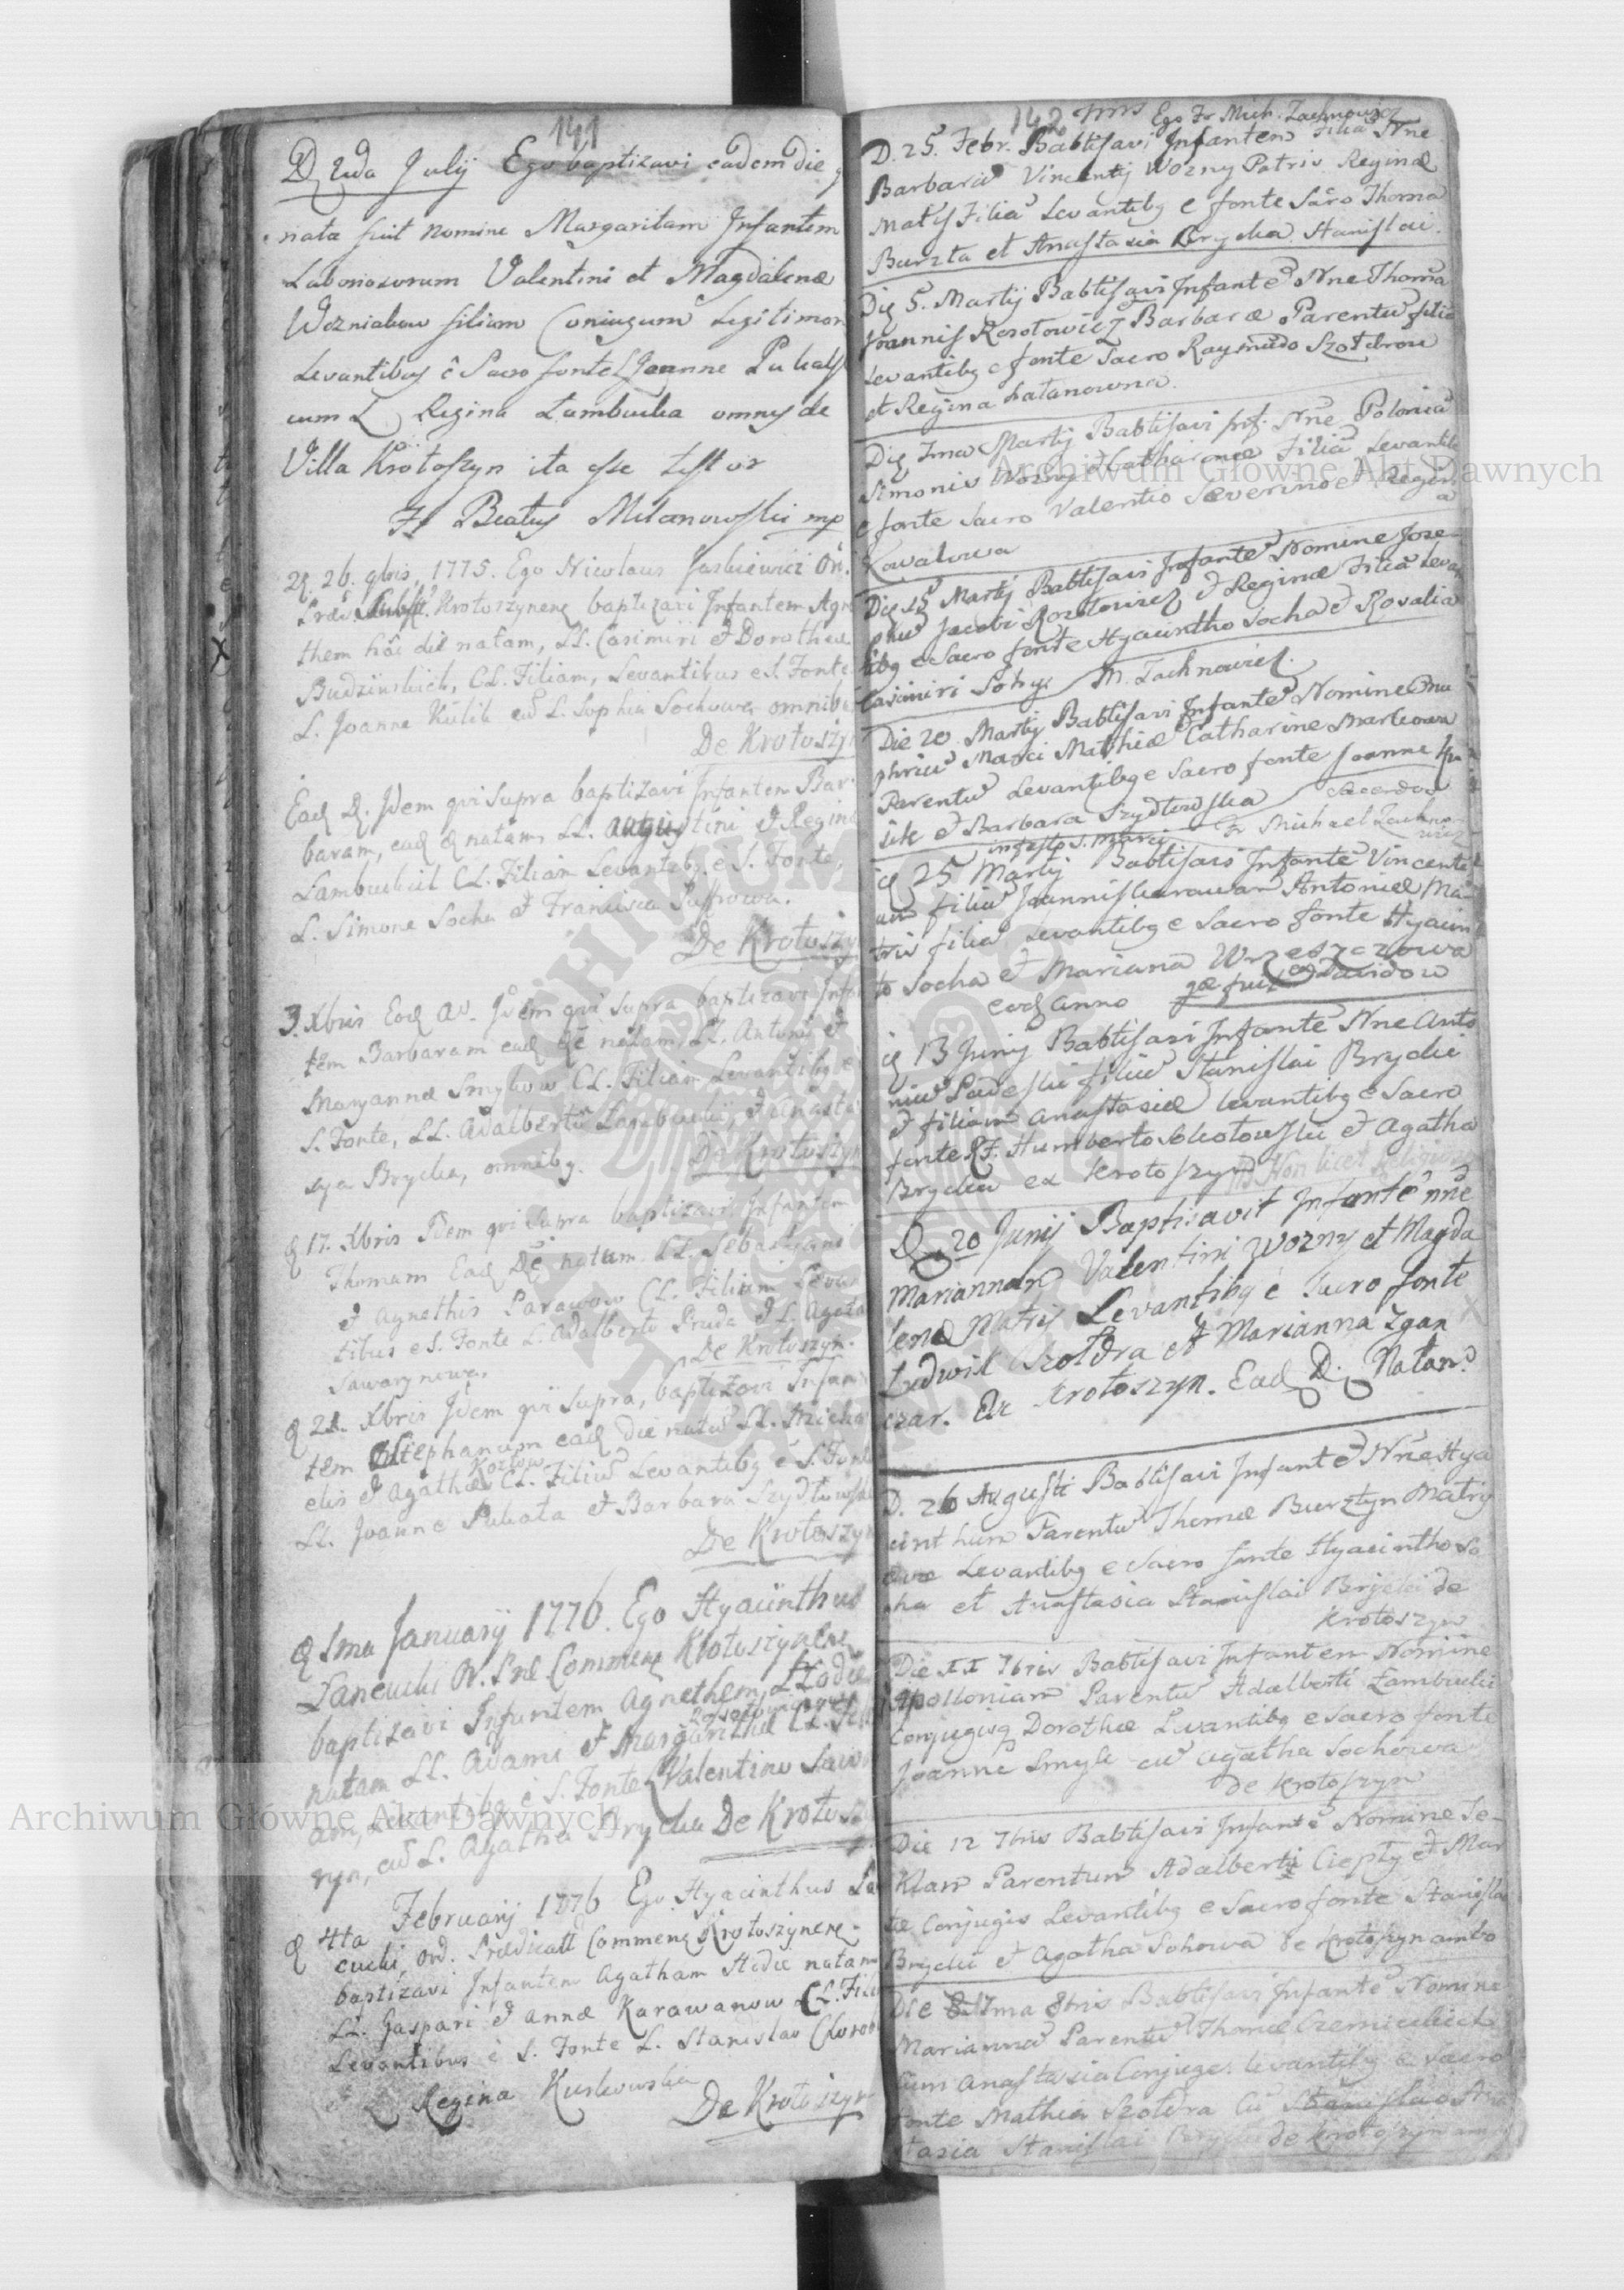 141
D 2da Julij Ego baptizavi eadem die q
nata fuit nomine Margaritam Infantem
Laboriosorum Valentini et Magdalenæ
Wozniakow filiam Coniugum Legitimor
Levantibus é Sacro fonte L Joanne Puhals
cum L Regina Lambucka omnes de
Villa Krotoszyn ita esse testor
Fr Beatus Milanowski mp
26. 9bris, 1775. Ego Nicolaus Jaskiewicz Ord.
Præd. Krotoszynens baptizavi Infantem Agne
them hâc die natam, LL. Casimiri et Dorotheæ
Budzinskich, CL. Filiam, Levantibus e S. Fonte
L. Joanne Kulik cū L. Sophia Sochowa omnibus
De Krotoszyn
Ead D. Idem qui supra baptizavi Infantem Bar
baram, ead natam, LL. Augustini et Reginæ
Lambuckich CL. Filiam Levantibg e S. Fonte,
L. Simone Socha et Francisca
De Krotoszyn
3. Xbris Eod Idem qui supra baptizavi Infan
tem Barbaram ead die natam, LL. Antonij et
Maryannæ Smykow CL. Filiam Levantibg e
S. Fonte, LL. Adalberto Lambucki, et Anasta
sya Brycka, omnibg.
De Krotoszyn
17. Xbris Idem qui supra baptizavi Infantem
Thomam Ead Die natum LL. Sebastyani
et Agnethis Parawow CL. Filium Levan
tibus e S. Fonte L. Adalberto Pruda et L. Agata
De Krotoszyn.
Sawarynowa.
21. Xbris Idem qui supra, baptizavi Infan
tem Stephanum eâd die natū LL. Micha
elis et Agathæ Koztow CL. Filiū Levantibg é S. Fonte
LL. Joanne Puhata et Barbara Szydtowska
De Krotoszyn
1ma Januarij 1776. Ego Hyacinthus
Lancucki Commen Krotoszynens
baptizavi Infantem Agnethem, hodie
natam LL. Adami et Margarithæ CL. Fili
am, Levantibg é S. Fonte L Valentino Sawa
ryn, cū L. Agatha Brycka De Krotosz
4ta Februarij 1776 Ego Hyacinthus Lan
cucki, Ord. Prædicatt Commens Krotoszynens
baptizavi Infantem Agatham Hodie natam
LL. Gaspari et Annæ Karawanow CL. Fili
Levantibus é S. Fonte L. Stanislao
et L Regina Kuskowska
De Krotoszyn
142 Ego Fr Mich. Zachnowicz
D. 25. Febr. Babtisavi Infantem Filiā Nne
Barbarā Vincentij Wozny Patris Reginæ
Matris Filiā Levantibg e fonte Sacro Thoma
Burzta et Anastasia Brycka Stanislai.
Die 5. Martij Babtisavi Infantē Nne Thoma
Joannis Rosotowicz Barbaræ Parentū filiū
Levantibg e fonte Sacro Raymūdo Szotdrow
et Regina Latanowna.
Die 7ma Martij Babtisavi Nne Poloniā
Simonis Wozny et Catharinæ Filiā Levantib
e fonte Sacro Valentio Severino et Regin
a
Kowalowa
Die 15 Martij Babtisavi Infantē Nomine Jose-
phū Jacobi Rozotowicz et Reginæ Filiū Levan
tibg e Sacro fonte Hyacintho Socha et Rosalia
Casimiri Sobys M. Zachnowicz.
Die 20 Martij Babtisavi Infantē Nomine Onu
phriū Marci Mathiæ Catharine Markowa
Parentū Levantibg e Sacro fonte Joanne
et Barbara Szydtowska Sacerdos
in festo S. Marci Fr Michael Zachno-
wicz
ie 25 Martij Babtisavi Infantē Vincenti
um filiū Joannis Karawan Antoniæ Ma-
tris filiū Levantibg e Sacro fonte Hyacin
to Socha et Mariana Wrzeszczowa
eod anno
ie 13 Junij Babtisavi Infantē Nne Anto
niū filiū Stanislai Brycki
et filium Anastasiæ Levantibg e Sacro
fonte Humberto Sokotowski et Agatha
Brycka ex Krotoszyn Non licet Religioso
D. 20 Junij Baptisavit Infantē nne
Mariannam Valentini Wozny et Magda
lenæ Matris Levantibg é sacro fonte
Ludwik Szotdra et Marianna Zgan
czar. Ex Krotoszyn. Ead D. Natam
D. 26 Augusti Babtisavi Infantē Nne Hya
cinthum Parentū Thomæ Burztyn Matris
Evæ Levantibg e Sacro fonte Hyacintho So
cha et Anastasia Stanislai Brycki de
Krotoszyn
Die 11 7bris Babtisavi Infantem Nomine
Apolloniam Parentū Adalberti Lambucki
Conjugisq Dorothæ Levantibg e Sacro fonte
Joanne Smyk cū Agatha Sochowa
de Krotoszyn
Die 12 7bris Babtisavi Infantē Nomine Te-
klam Parentum Adalberti Ciepty et Mar
Conjugis Levantibg e Sacro fonte Stanisla
Brycki et Agatha Sohowa de Krotoszyn ambo
Die 17ma 8bris Babtisavi Infantē Nomine
Mariannā Parentū Thomæ Czernickich
Cum Anastasia Conjuge. Levantibg e Sacro
fonte Mathia Szotdra Cū Stanislao Ana
stasia Stanislai Brycki de Krotoszyn
Archiwum Główne Akt Dawnych
Archiwum Główne Akt Dawnych